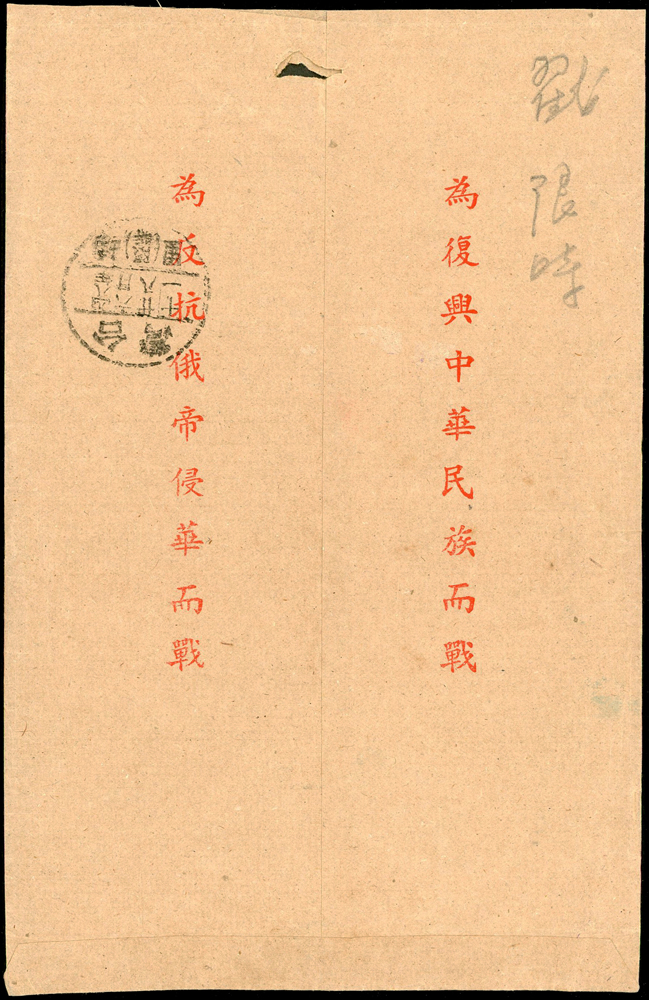 戳 限時
為復興中華民族而戰
為反抗俄帝侵華而戰
台灣